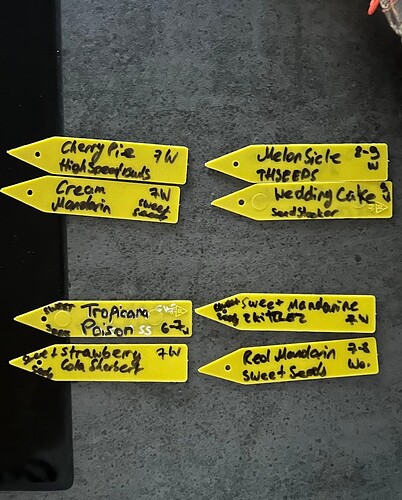 Cherry Pie 7W
High Speed Buds
Cream 7W
Mandarin sweet
Seeds
MelonSicle 8-9
THSEEDS W
Wedding Cake 9
SeedStocker W
sweet Tropicana
Seeds Poison SS 6-7W
sweet Strawberry 7W
Seeds Cola Sherbert
sweet Sweet Mandarine
Seeds ZKITTLEZ 7W
Red Mandarin 7-8
Sweet Seeds Wo.